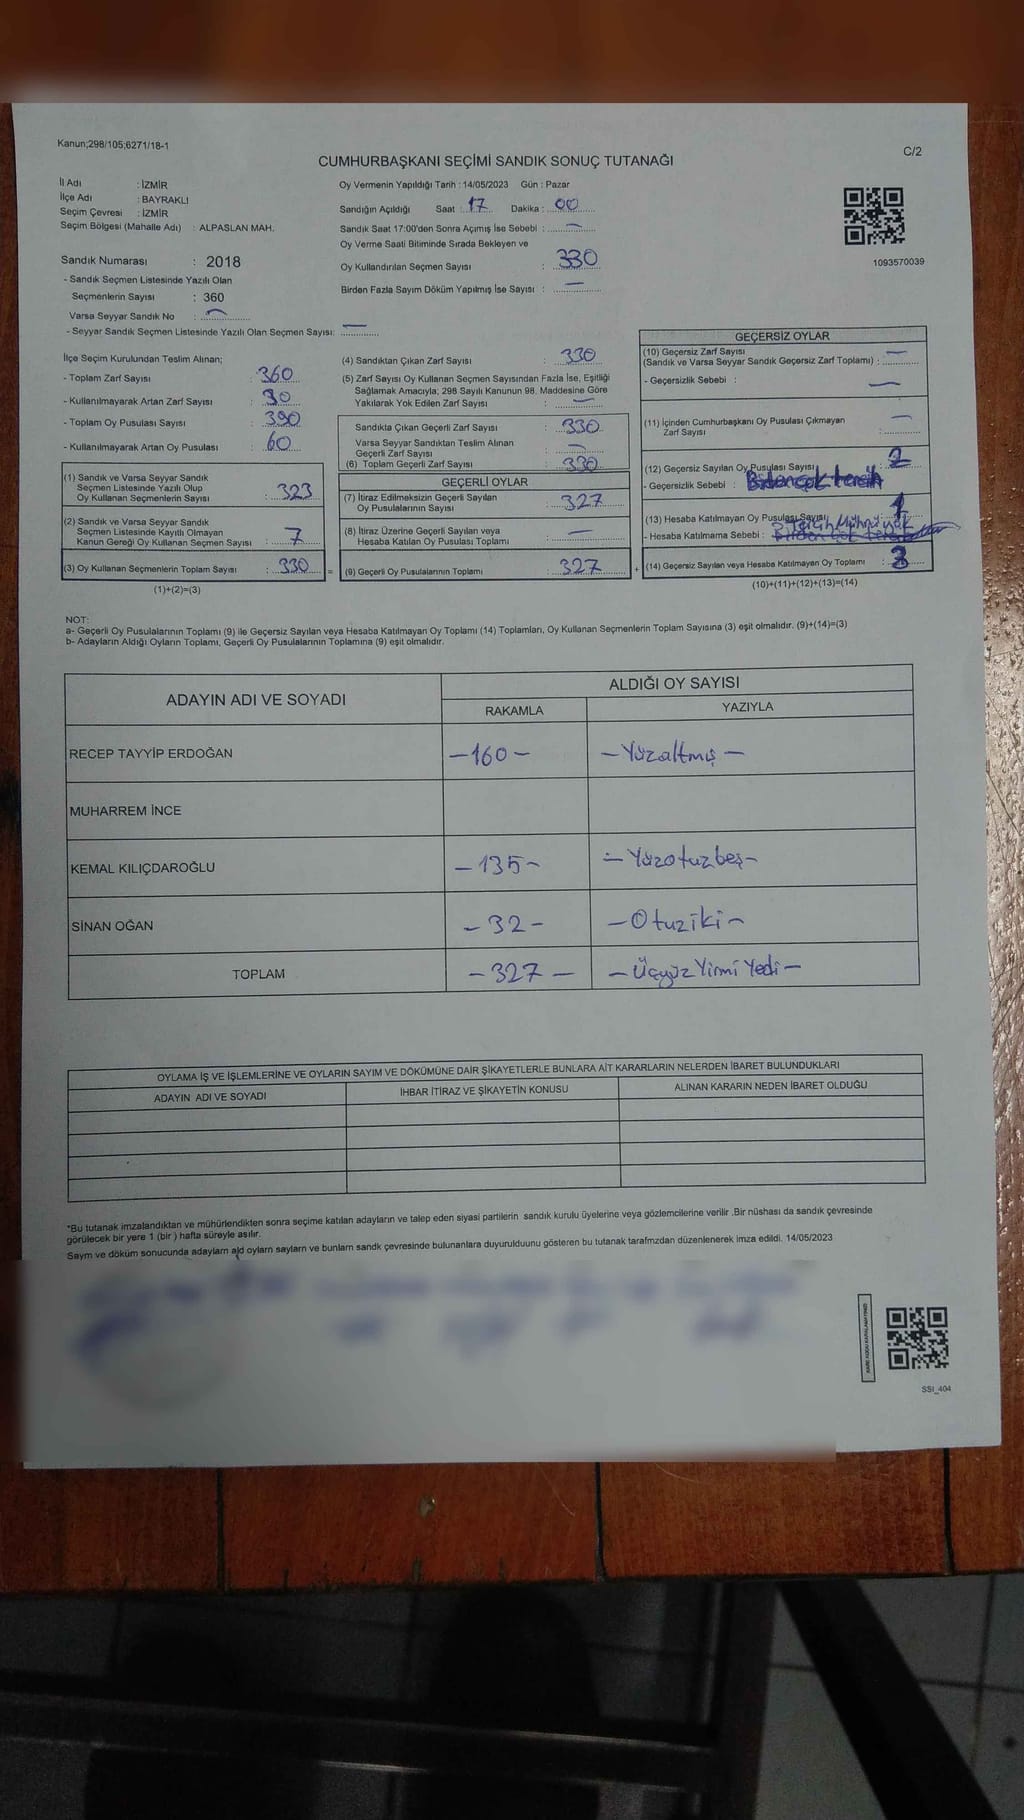 Kanun;298/105;6271/18-1
C/2
CUMHURBAŞKANI SEÇİMİ SANDIK SONUÇ TUTANAĞI
İl Adı : İZMİR
İlçe Adı : BAYRAKLI
Seçim Çevresi : İZMİR
Seçim Bölgesi (Mahalle Adı) : ALPASLAN MAH.
Sandık Numarası : 2018
- Sandık Seçmen Listesinde Yazılı Olan
Seçmenlerin Sayısı : 360
Varsa Seyyar Sandık No : —
- Seyyar Sandık Seçmen Listesinde Yazılı Olan Seçmen Sayısı: —
Oy Vermenin Yapıldığı Tarih : 14/05/2023 Gün : Pazar
Sandığın Açıldığı Saat : 17 Dakika : 00
Sandık Saat 17:00'den Sonra Açımış İse Sebebi : —
Oy Verme Saati Bitiminde Sırada Bekleyen ve
Oy Kullandırılan Seçmen Sayısı : 330
Birden Fazla Sayım Döküm Yapılmış İse Sayısı : —
1093570039
İlçe Seçim Kurulundan Teslim Alınan;
- Toplam Zarf Sayısı : 360
- Kullanılmayarak Artan Zarf Sayısı : 30
- Toplam Oy Pusulası Sayısı : 390
- Kullanılmayarak Artan Oy Pusulası : 60
(1) Sandık ve Varsa Seyyar Sandık
Seçmen Listesinde Yazılı Olup
Oy Kullanan Seçmenlerin Sayısı : 323
(2) Sandık ve Varsa Seyyar Sandık
Seçmen Listesinde Kayıtlı Olmayan
Kanun Gereği Oy Kullanan Seçmen Sayısı : 7
(3) Oy Kullanan Seçmenlerin Toplam Sayısı : 330 =
(1)+(2)=(3)
(4) Sandıktan Çıkan Zarf Sayısı : 330
(5) Zarf Sayısı Oy Kullanan Seçmen Sayısından Fazla İse, Eşitliği
Sağlamak Amacıyla; 298 Sayılı Kanunun 98. Maddesine Göre
Yakılarak Yok Edilen Zarf Sayısı : —
Sandıkta Çıkan Geçerli Zarf Sayısı : 330
Varsa Seyyar Sandıktan Teslim Alınan
Geçerli Zarf Sayısı : —
(6) Toplam Geçerli Zarf Sayısı : 330
GEÇERLİ OYLAR
(7) İtiraz Edilmeksizin Geçerli Sayılan
Oy Pusulasının Sayısı : 327
(8) İtiraz Üzerine Geçerli Sayılan veya
Hesaba Katılan Oy Pusulası Toplamı : —
(9) Geçerli Oy Pusulalarının Toplamı : 327 +
GEÇERSİZ OYLAR
(10) Geçersiz Zarf Sayısı
(Sandık ve Varsa Seyyar Sandık Geçersiz Zarf Toplamı) : —
- Geçersizlik Sebebi : —
(11) İçinden Cumhurbaşkanı Oy Pusulası Çıkmayan
Zarf Sayısı : —
(12) Geçersiz Sayılan Oy Pusulası Sayısı : 2
- Geçersizlik Sebebi : Birden çok tercih
(13) Hesaba Katılmayan Oy Pusulası Sayısı : 1
- Hesaba Katılmama Sebebi : Tercih Mührü yok
(14) Geçersiz Sayılan veya Hesaba Katılmayan Oy Toplamı : 3
(10)+(11)+(12)+(13)=(14)
NOT:
a- Geçerli Oy Pusulalarının Toplamı (9) ile Geçersiz Sayılan veya Hesaba Katılmayan Oy Toplamı (14) Toplamları, Oy Kullanan Seçmenlerin Toplam Sayısına (3) eşit olmalıdır. (9)+(14)=(3)
b- Adayların Aldığı Oyların Toplamı, Geçerli Oy Pusulalarının Toplamına (9) eşit olmalıdır.
ADAYIN ADI VE SOYADI ALDIĞI OY SAYISI
RAKAMLA YAZIYLA
RECEP TAYYİP ERDOĞAN -160- -Yüzaltmış-
MUHARREM İNCE
KEMAL KILIÇDAROĞLU -135- -Yüzotuzbeş-
SİNAN OĞAN -32- -Otuziki-
TOPLAM -327- -Üçyüz Yirmi Yedi-
OYLAMA İŞ VE İŞLEMLERİNE VE OYLARIN SAYIM VE DÖKÜMÜNE DAİR ŞİKAYETLERLE BUNLARA AİT KARARLARIN NELERDEN İBARET BULUNDUKLARI
ADAYIN ADI VE SOYADI İHBAR İTİRAZ VE ŞİKAYETİN KONUSU ALINAN KARARIN NEDEN İBARET OLDUĞU
*Bu tutanak imzalandıktan ve mühürlendikten sonra seçime katılan adayların ve talep eden siyasi partilerin sandık kurulu üyelerine veya gözlemcilerine verilir .Bir nüshası da sandık çevresinde
görülecek bir yere 1 (bir ) hafta süreyle asılır.
Saym ve döküm sonucunda adaylarn ald oylarn saylarn ve bunlarn sandk çevresinde bulunanlara duyurulduunu gösteren bu tutanak tarafmzdan düzenlenerek imza edildi. 14/05/2023
SSI_404